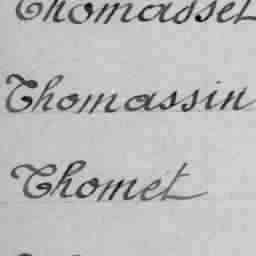 Thomasset
Thomassin
Thomet